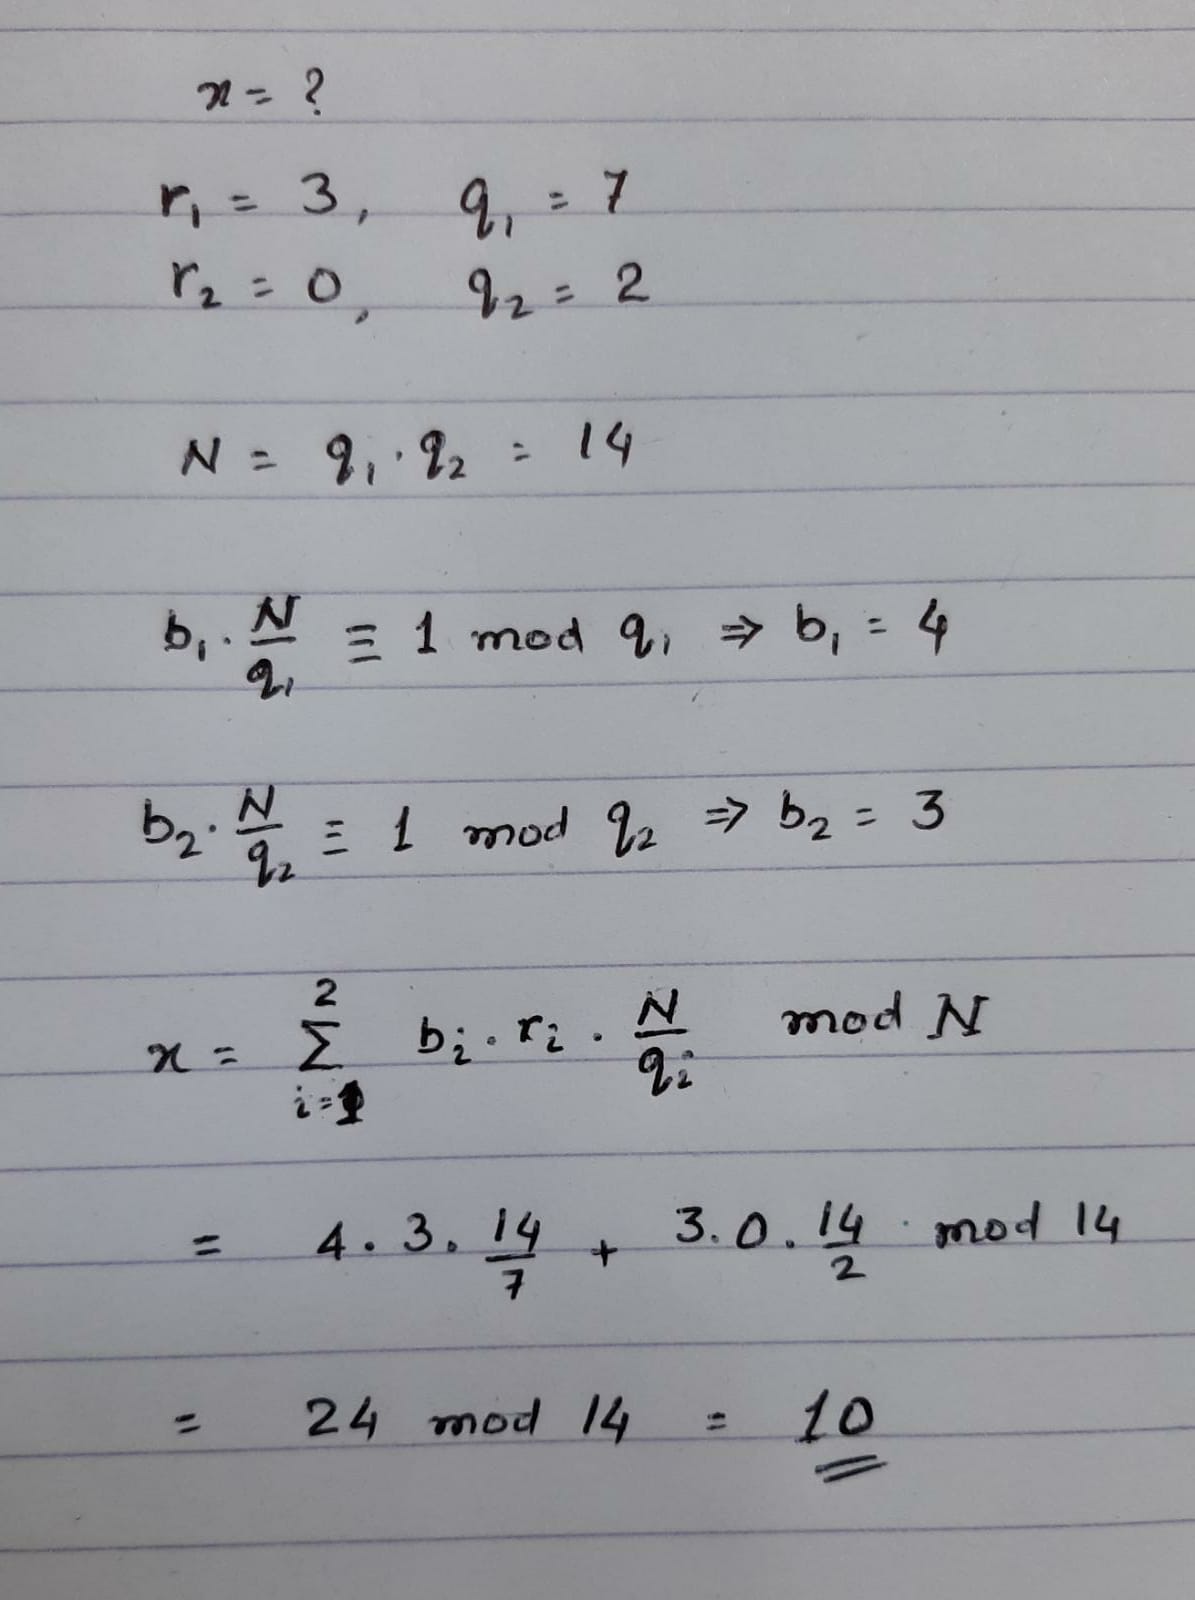 x = ?
r₁ = 3, q₁ = 7
r₂ = 0, q₂ = 2
N = q₁ · q₂ = 14
b₁ · N/q₁ ≡ 1 mod q₁ ⇒ b₁ = 4
b₂ · N/q₂ ≡ 1 mod q₂ ⇒ b₂ = 3
x = ∑_{i=1}^{2} bᵢ · rᵢ · N/qᵢ mod N
= 4 · 3 · 14/7 + 3 · 0 · 14/2 mod 14
= 24 mod 14 = 10